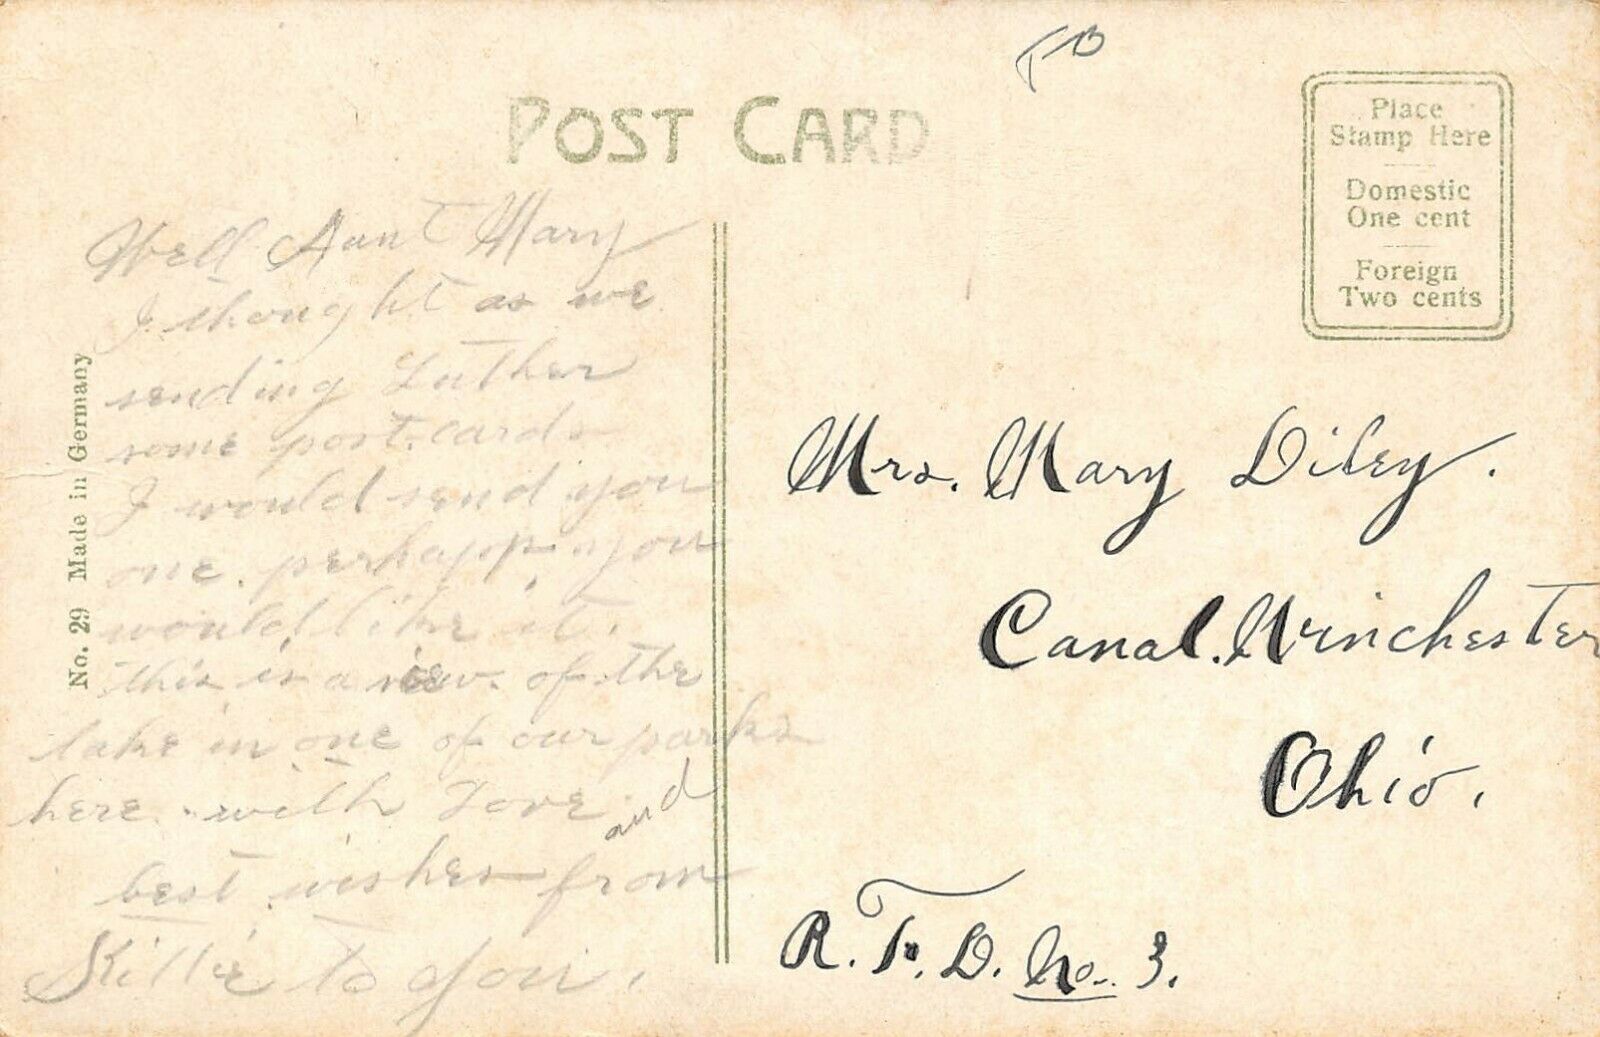 POST CARD
Place
Stamp Here
Domestic
One cent
Foreign
Two cents
No. 29 Made in Germany
Well Aunt Mary
I thought as we
sending Luther
some post.cards
I would send you
one. perhapp. you
would like it.
this is a view. of the
lake in one of our parks
here. with Love
and
best wishes from
to you.
Mrs. Mary Diley.
Canal.Winchester
Ohio.
R. F. D. No. 3.